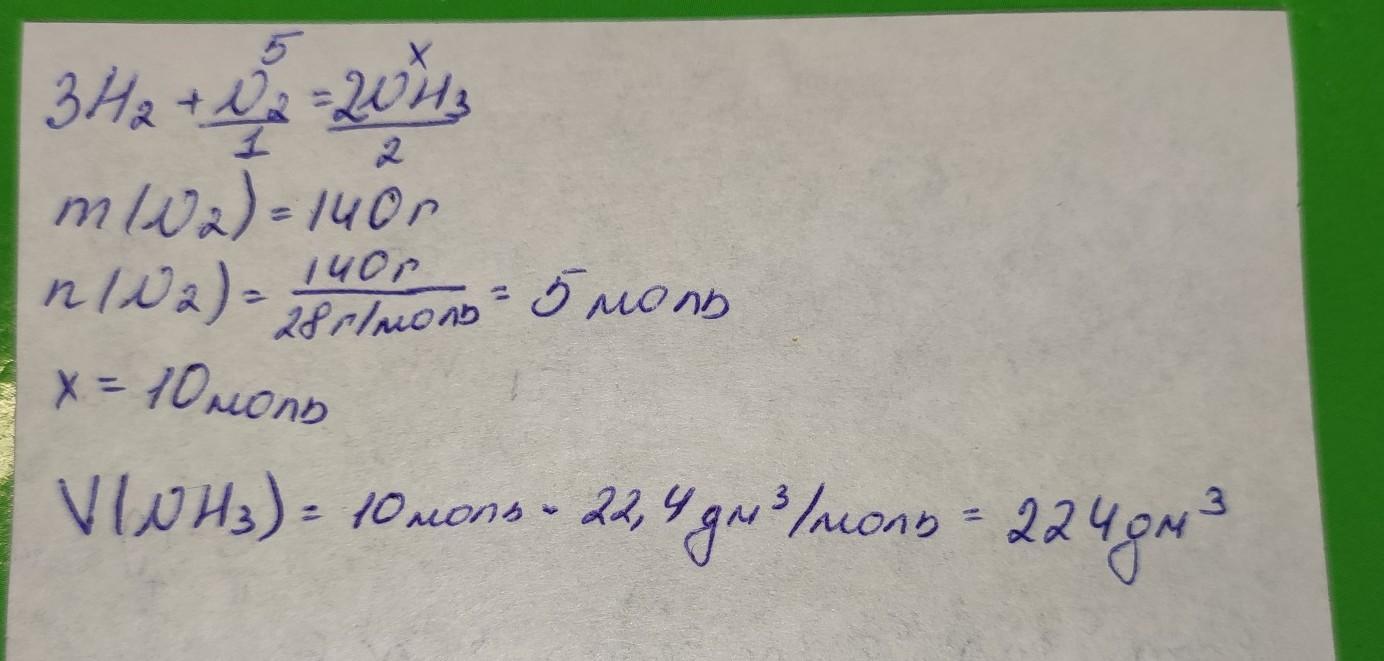 5 x
3H₂ + N₂ = 2NH₃
1 2
m(N₂) = 140г
n(N₂) = 140г / 28г/моль = 5 моль
x = 10моль
V(NH₃) = 10моль · 22,4дм³/моль = 224дм³